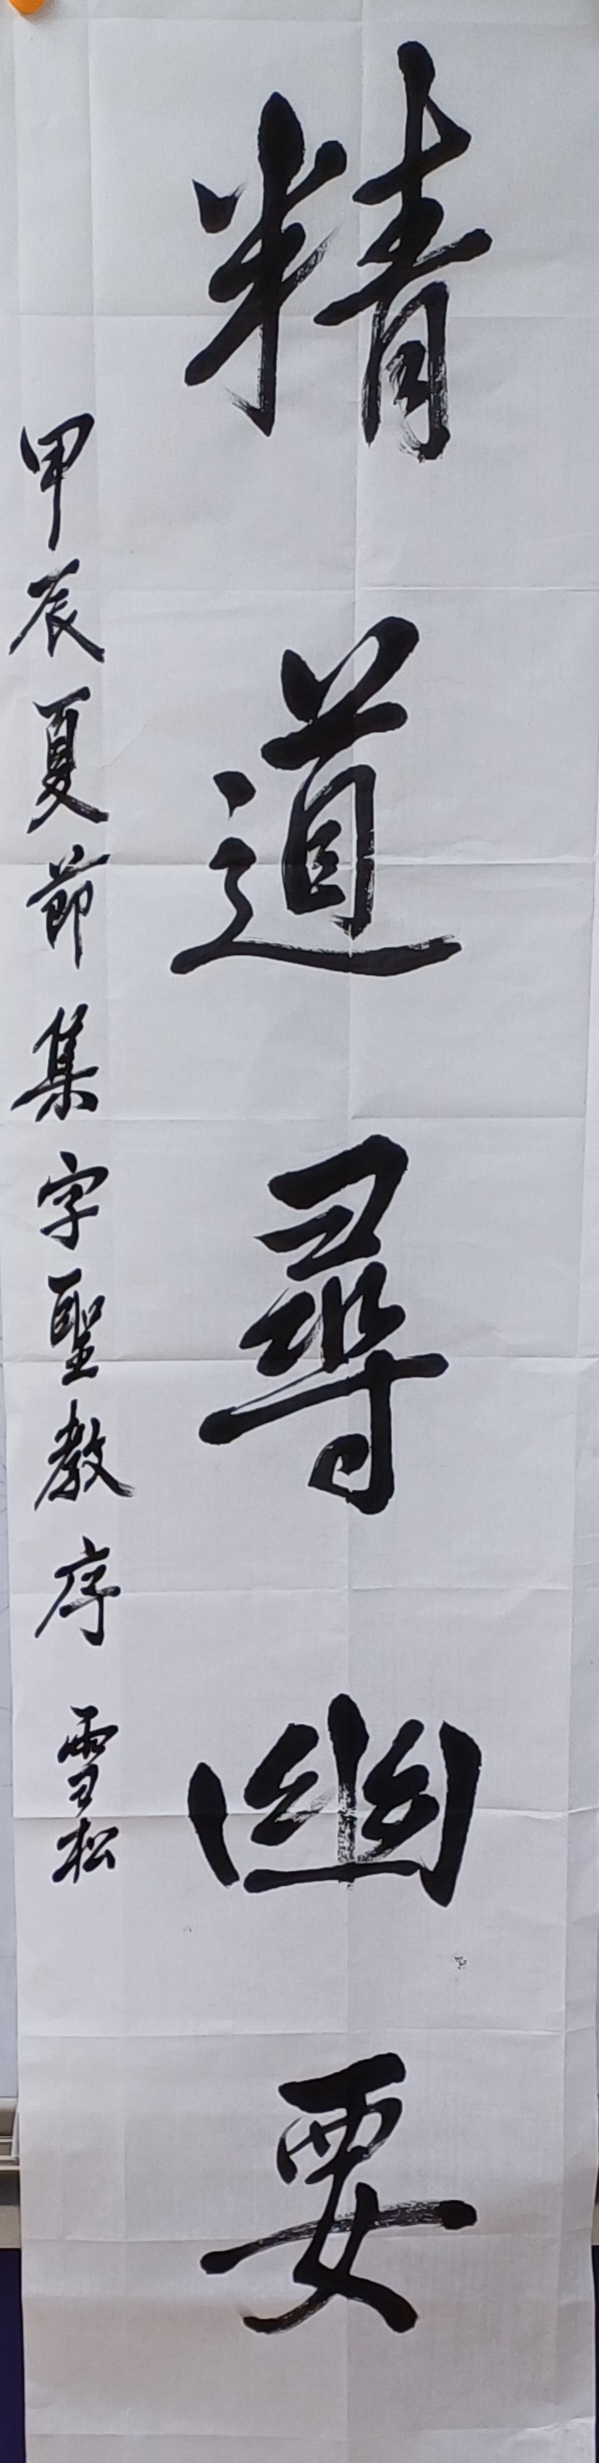 精道尋幽要
甲辰夏節集字聖教序 雪松